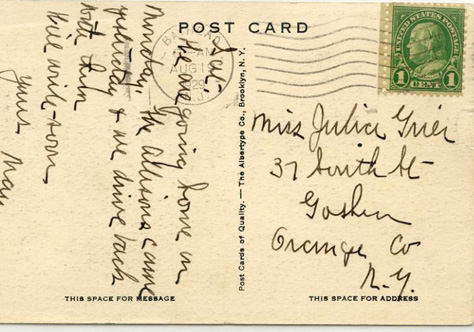 POST CARD
AUG 19
1929
N.J.
UNITED STATES POSTAGE
1 CENT 1
Sat.
We are going home on
Monday. The Allisons came
yesterday & we drive back
with them
Will write soon
Yours May
Post Cards of Quality. — The Albertype Co., Brooklyn, N. Y.
Miss Julia Grier
37 South St
Goshen
Orange Co
N.Y.
THIS SPACE FOR MESSAGE
THIS SPACE FOR ADDRESS